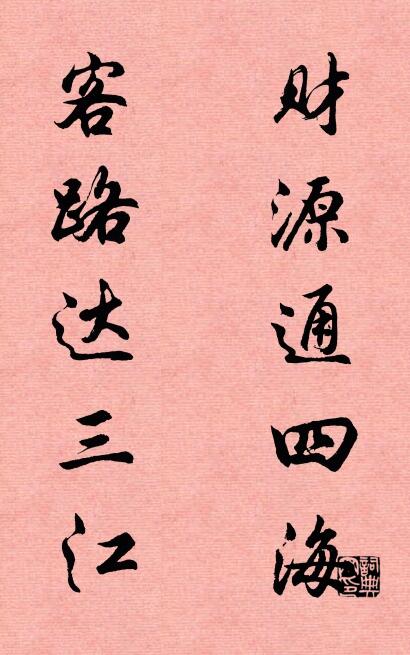 财源通四海
客路达三江